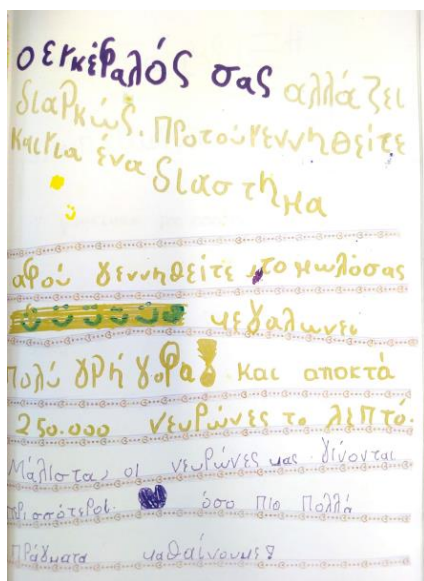 Ο εγκέφαλός σας αλλάζει
διαρκώς. Προτού γεννηθείτε
και για ένα διάστημα
αφού γεννηθείτε, το μυλόσας
μεγαλώνει
πολύ γρήγορα και αποκτά
250.000 νευρώνες το λεπτό.
Μάλιστα, οι νευρώνες μας γίνονται
περισσότεροι όσο πιο πολλά
πράγματα μαθαίνουμε!